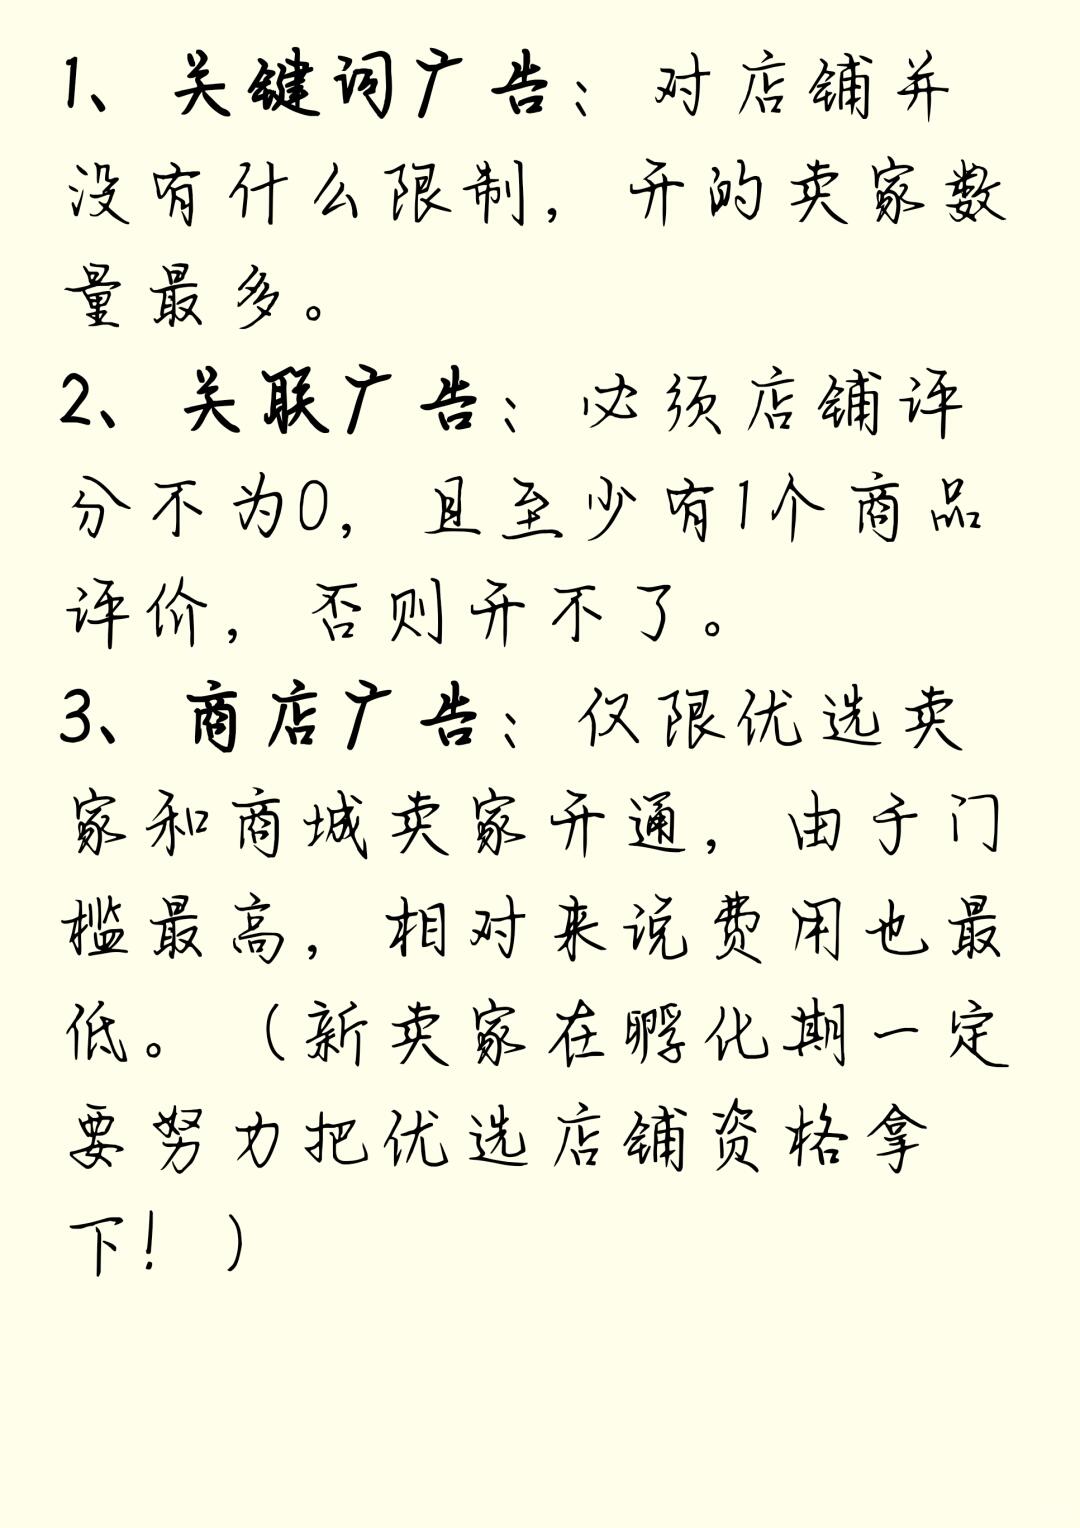 1、关键词广告：对店铺并
没有什么限制，开的卖家数
量最多。
2、关联广告：必须店铺评
分不为0，且至少有1个商品
评价，否则开不了。
3、商店广告：仅限优选卖
家和商城卖家开通，由于门
槛最高，相对来说费用也最
低。（新卖家在孵化期一定
要努力把优选店铺资格拿
下！）